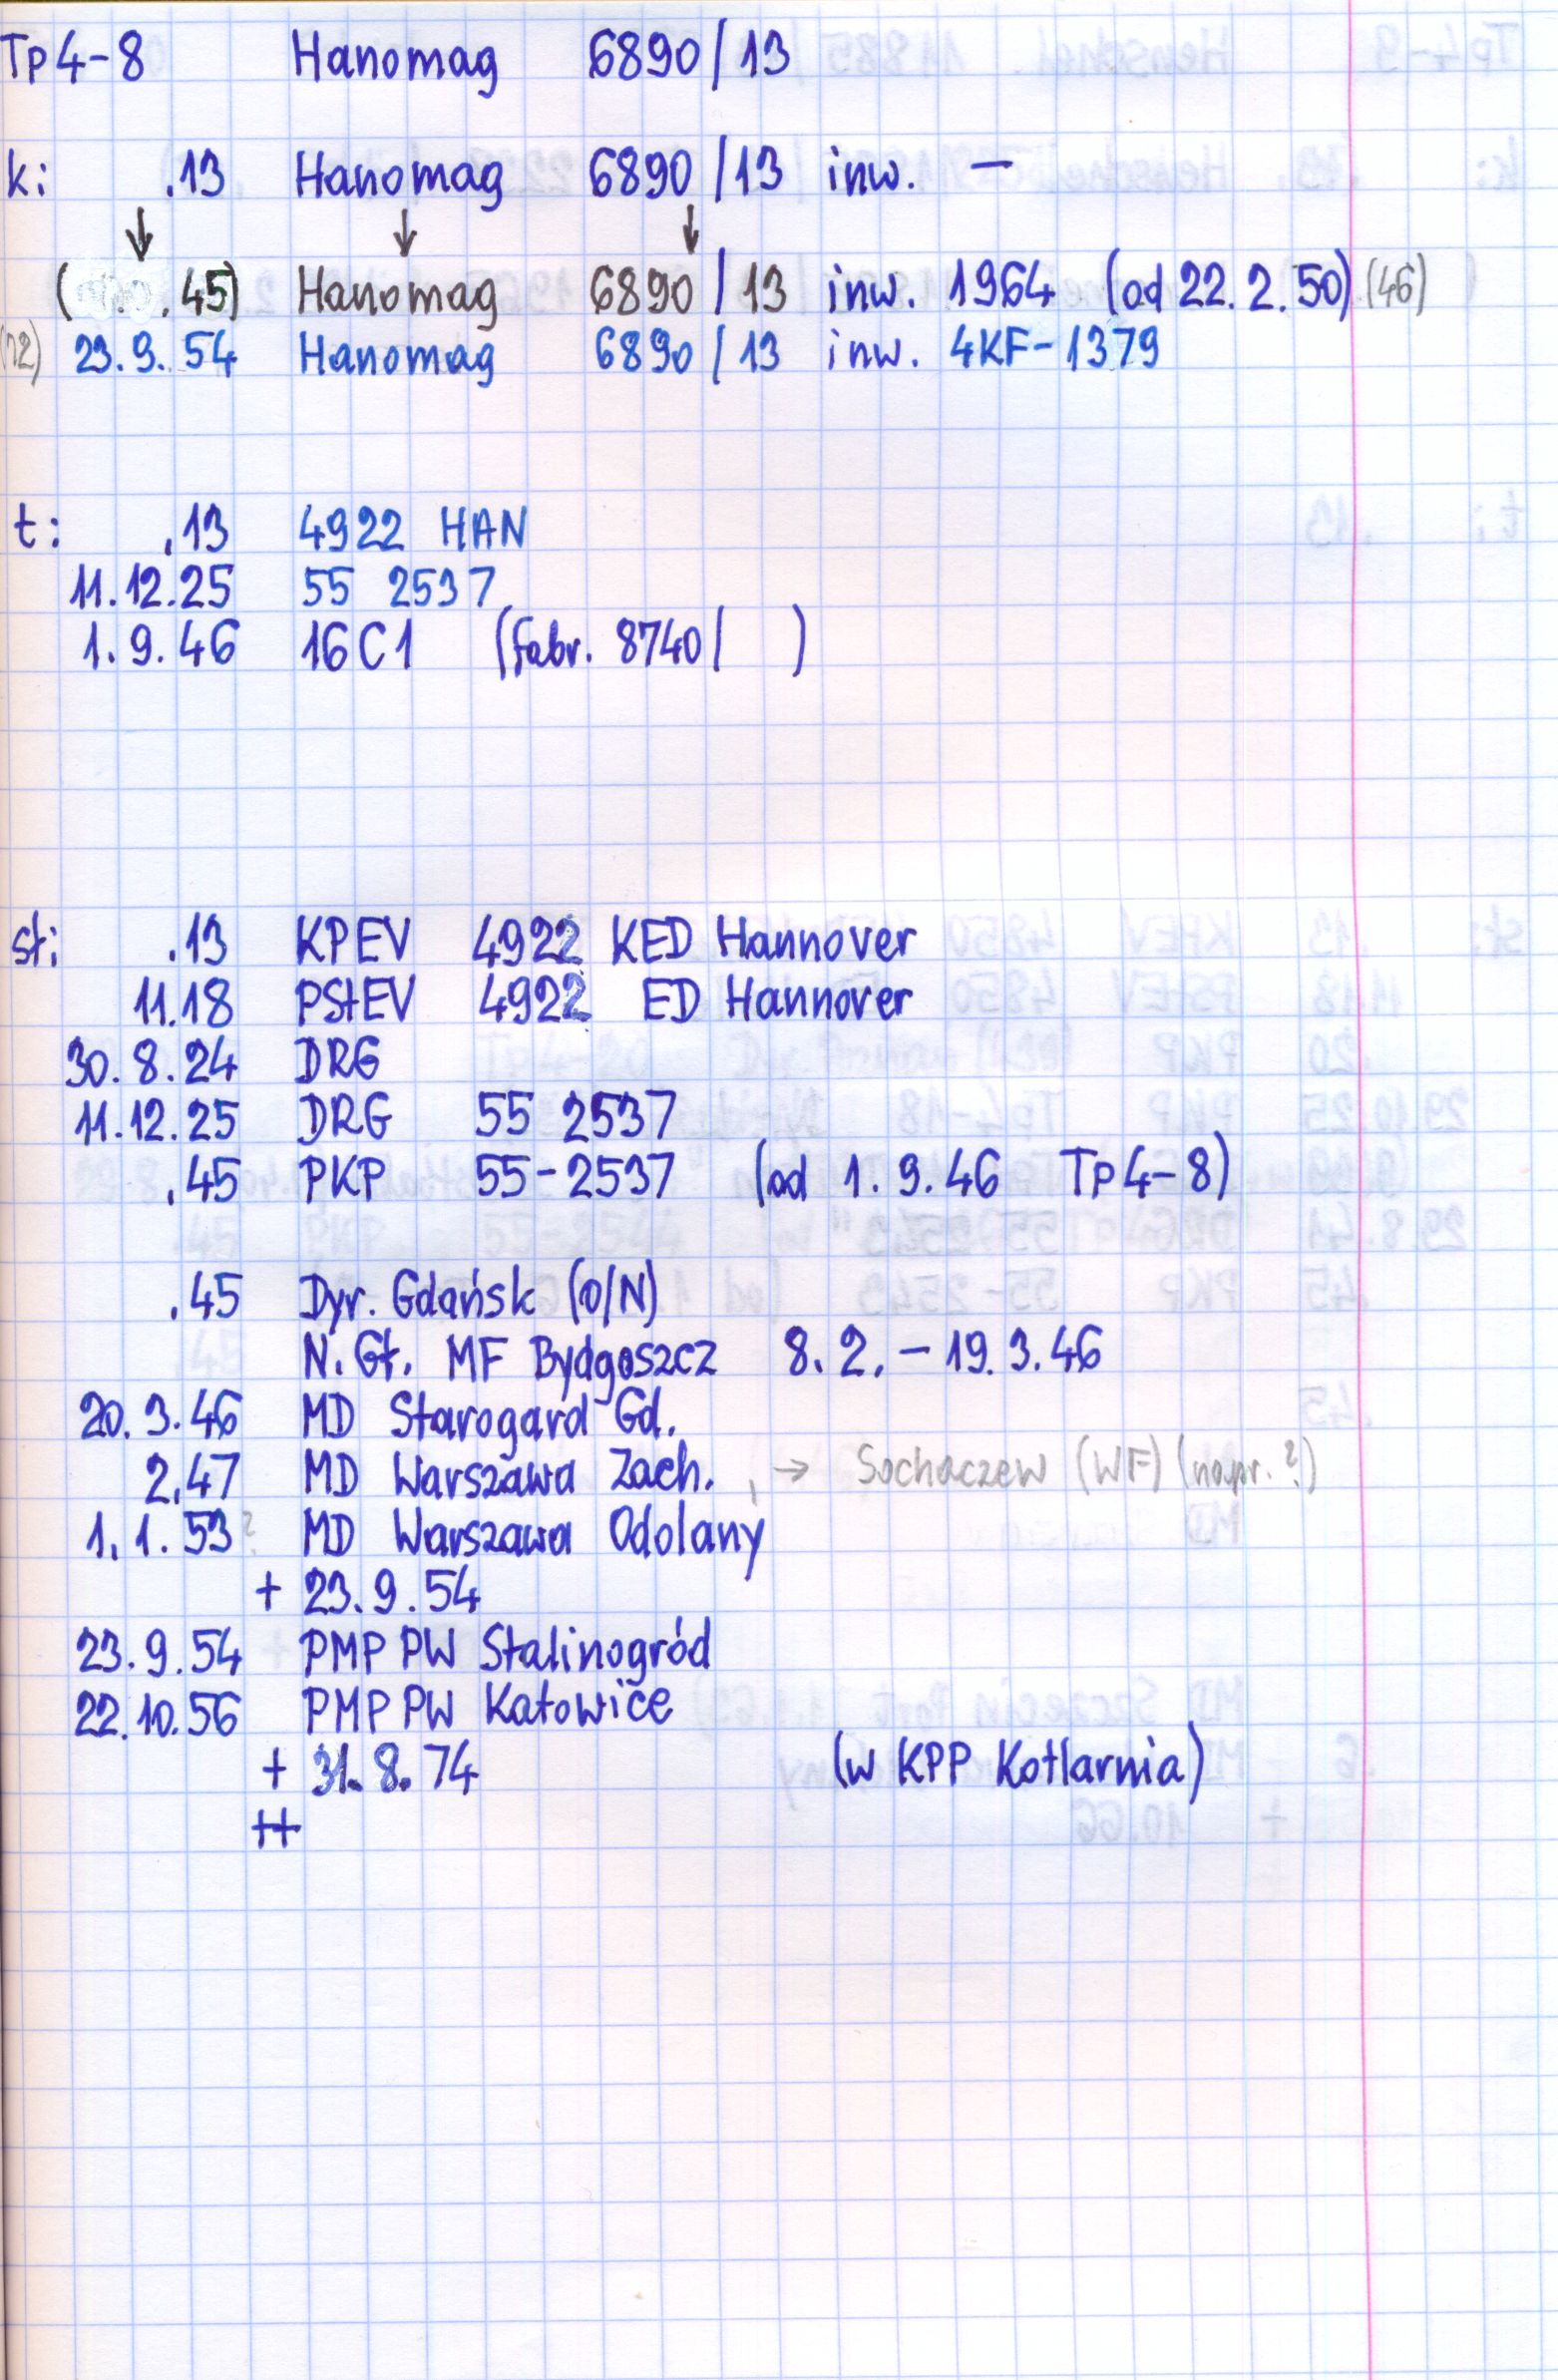 Tp4-8 Hanomag 6890/13
k: .13 Hanomag 6890/13 inw. —
↓ ↓ ↓
( .45) Hanomag 6890/13 inw. 1964 (od 22.2.50) (46)
23.9.54 Hanomag 6890/13 inw. 4KF-1379
t: .13 4922 HAN
11.12.25 55 2537
1.9.46 16C1 (fabr. 8740/ )
st: .13 KPEV 4922 KED Hannover
11.18 PStEV 4922 ED Hannover
30.8.24 DRG
11.12.25 DRG 55 2537
.45 PKP 55-2537 (od 1.9.46 Tp4-8)
.45 Dyr. Gdańsk (O/N)
N.Gł. MF Bydgoszcz 8.2.-19.3.46
20.3.46 MD Starogard Gd.
2.47 MD Warszawa Zach., → Sochaczew (WF) (napr.?)
1.1.53? MD Warszawa Odolany
+ 23.9.54
23.9.54 PMP PW Stalinogród
22.10.56 PMP PW Katowice
+ 31.8.74 (w KPP Kotlarnia)
++